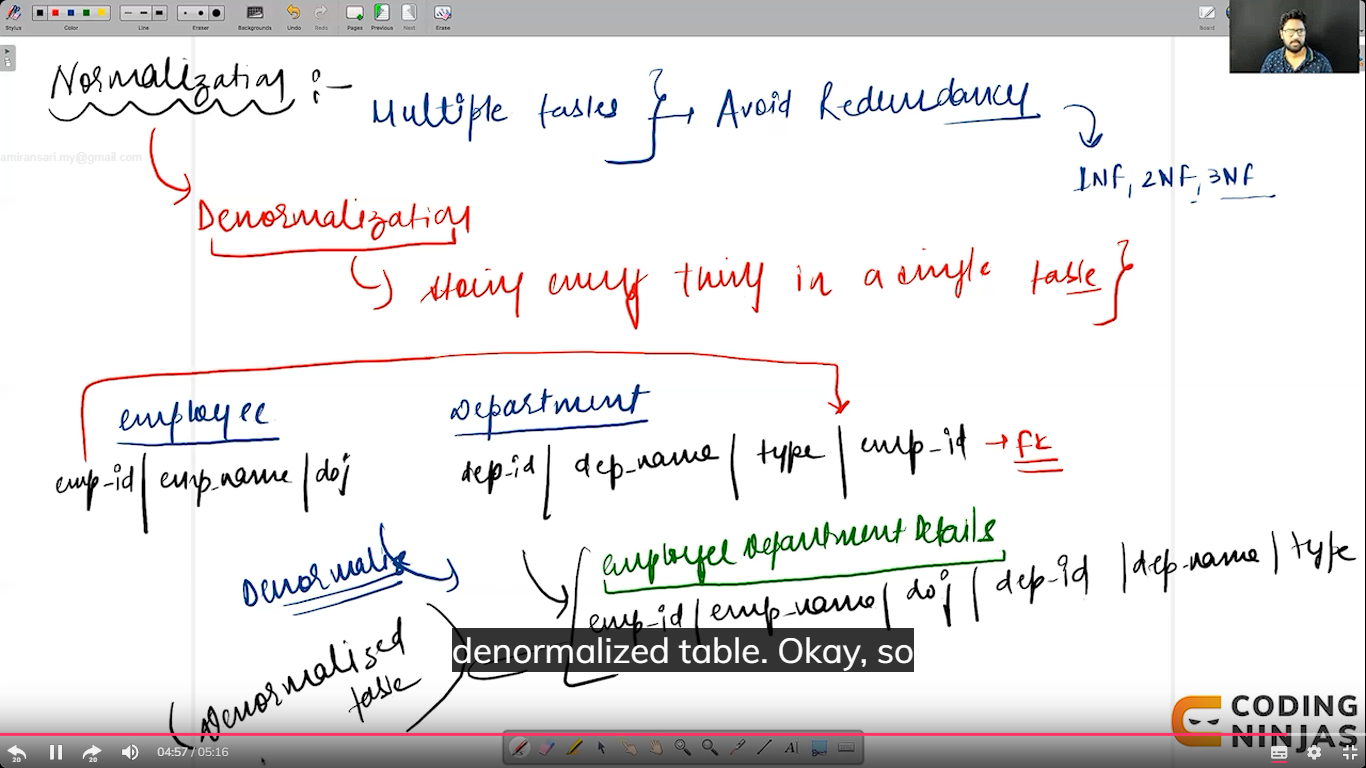 Stylus Color Line Eraser Backgrounds Undo Redo Pages Previous Next Erase Board
Normalization :-
Multiple tables } → Avoid Redundancy
1NF, 2NF, 3NF
amiransari.my@gmail.com
Denormalization
storing every thing in a single table }
employee
Department
emp-id | emp-name | doj
dep-id | dep-name | type | emp-id → FK
Denormalise
employee Department Details
emp-id | emp-name | doj | dep-id | dep-name | type
denormalized table. Okay, so
Denormalised
table
CODING
NINJAS
20 20 04:57 / 05:16